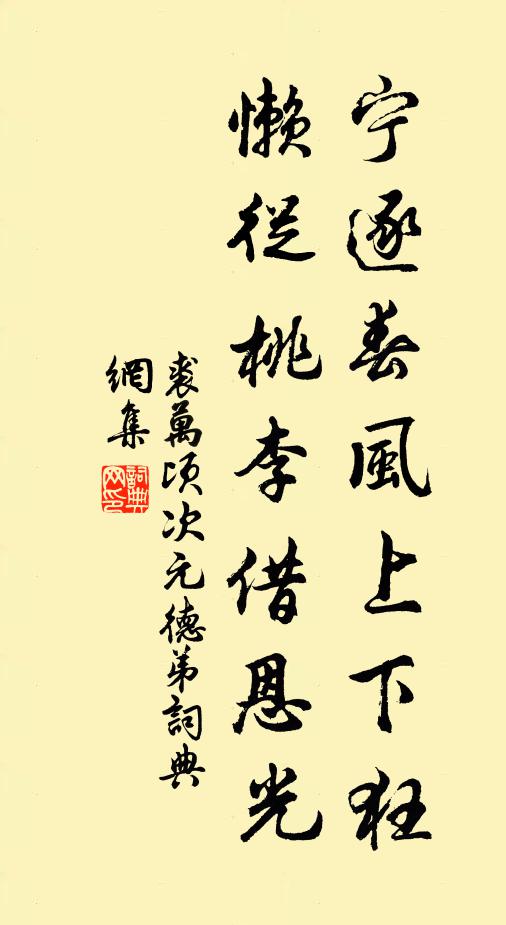 宁逐春風上下狂
懶從桃李借恩光
裘萬頃次元德弟詞典
網集
詞典網印